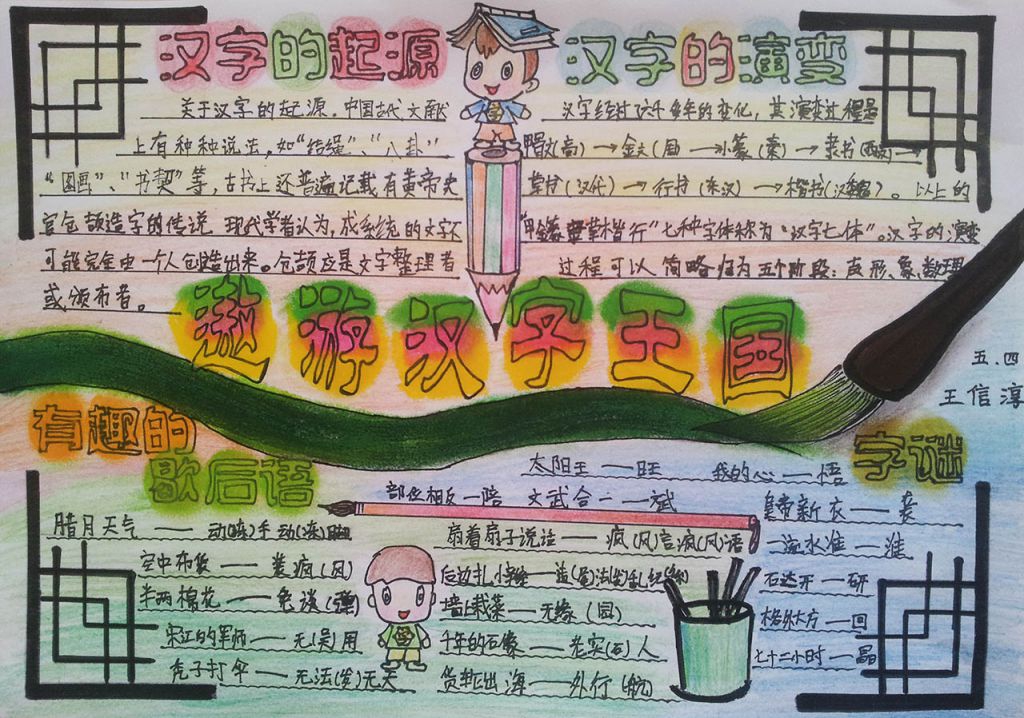 汉字的起源
关于汉字的起源，中国古代文献
上有种种说法，如“结绳”、“八卦”
“图画”、“书契”等，古书上还普遍记载有黄帝史
官仓颉造字的传说 现代学者认为，成系统的文字不
可能完全由一个人创造出来。仓颉应是文字整理者
或颁布者。
汉字的演变
汉字经过了6千多年的变化，其演变过程是
甲骨文(商)→金文(周)→小篆(秦)→隶书(西汉)→
草书(汉代)→行书(东汉)→楷书(汉魏)。以上的
“甲金篆隶草楷行”七种字体称为“汉字七体”。汉字的演变
过程可以简略归为五个阶段：声、形、象、数、理
遨游汉字王国
五.四
王信淳
有趣的
歇后语
腊月天气——动(冻)手动(冻)脚
空中布袋——装疯(风)
半两棉花——免谈(弹)
宋江的军师——无(吴)用
秃子打伞——无法(发)无天
扇着扇子说话——疯(风)言疯(风)语
墙上栽菜——无缘(园)
千年的石像——老实(石)人
货船出海——外行(航)
字谜
太阳王——旺
我的心——悟
部位相反—陪
文武合一——斌
皇帝新衣——袭
一滴水准——淮
石达开——研
格外大方——回
七十二小时——晶